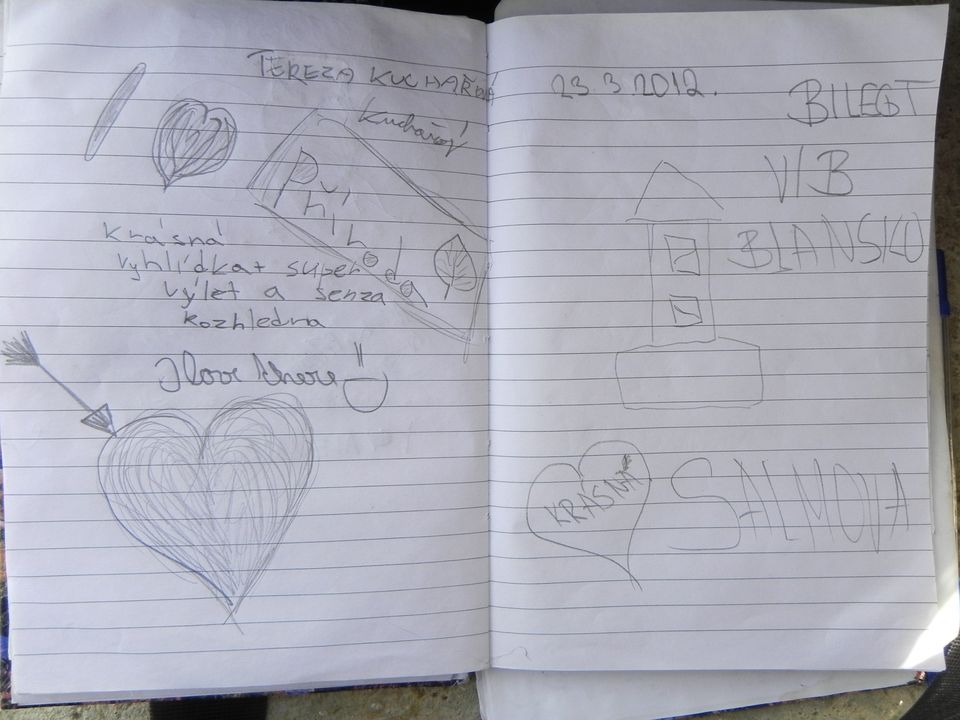 TEREZA KUCHAŘOVÁ
Kuchařový
I
Příroda
Krásná
vyhlídka + super
výlet a senza
rozhledna
I love there
23.3.2012.
BILEGT
V/B
BLANSKO
KRÁSNÁ
SALMOVA